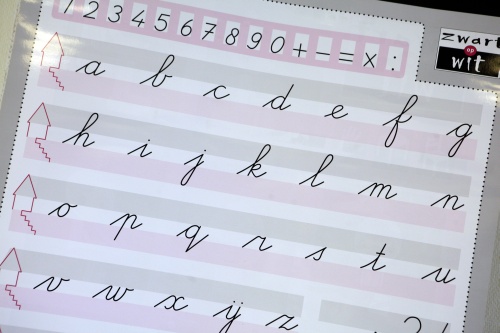 1 2 3 4 5 6 7 8 9 0 + - = x :
zwart
op
wit
a b c d e f g
h i j k l m n
o p q r s t u
v w x ij z